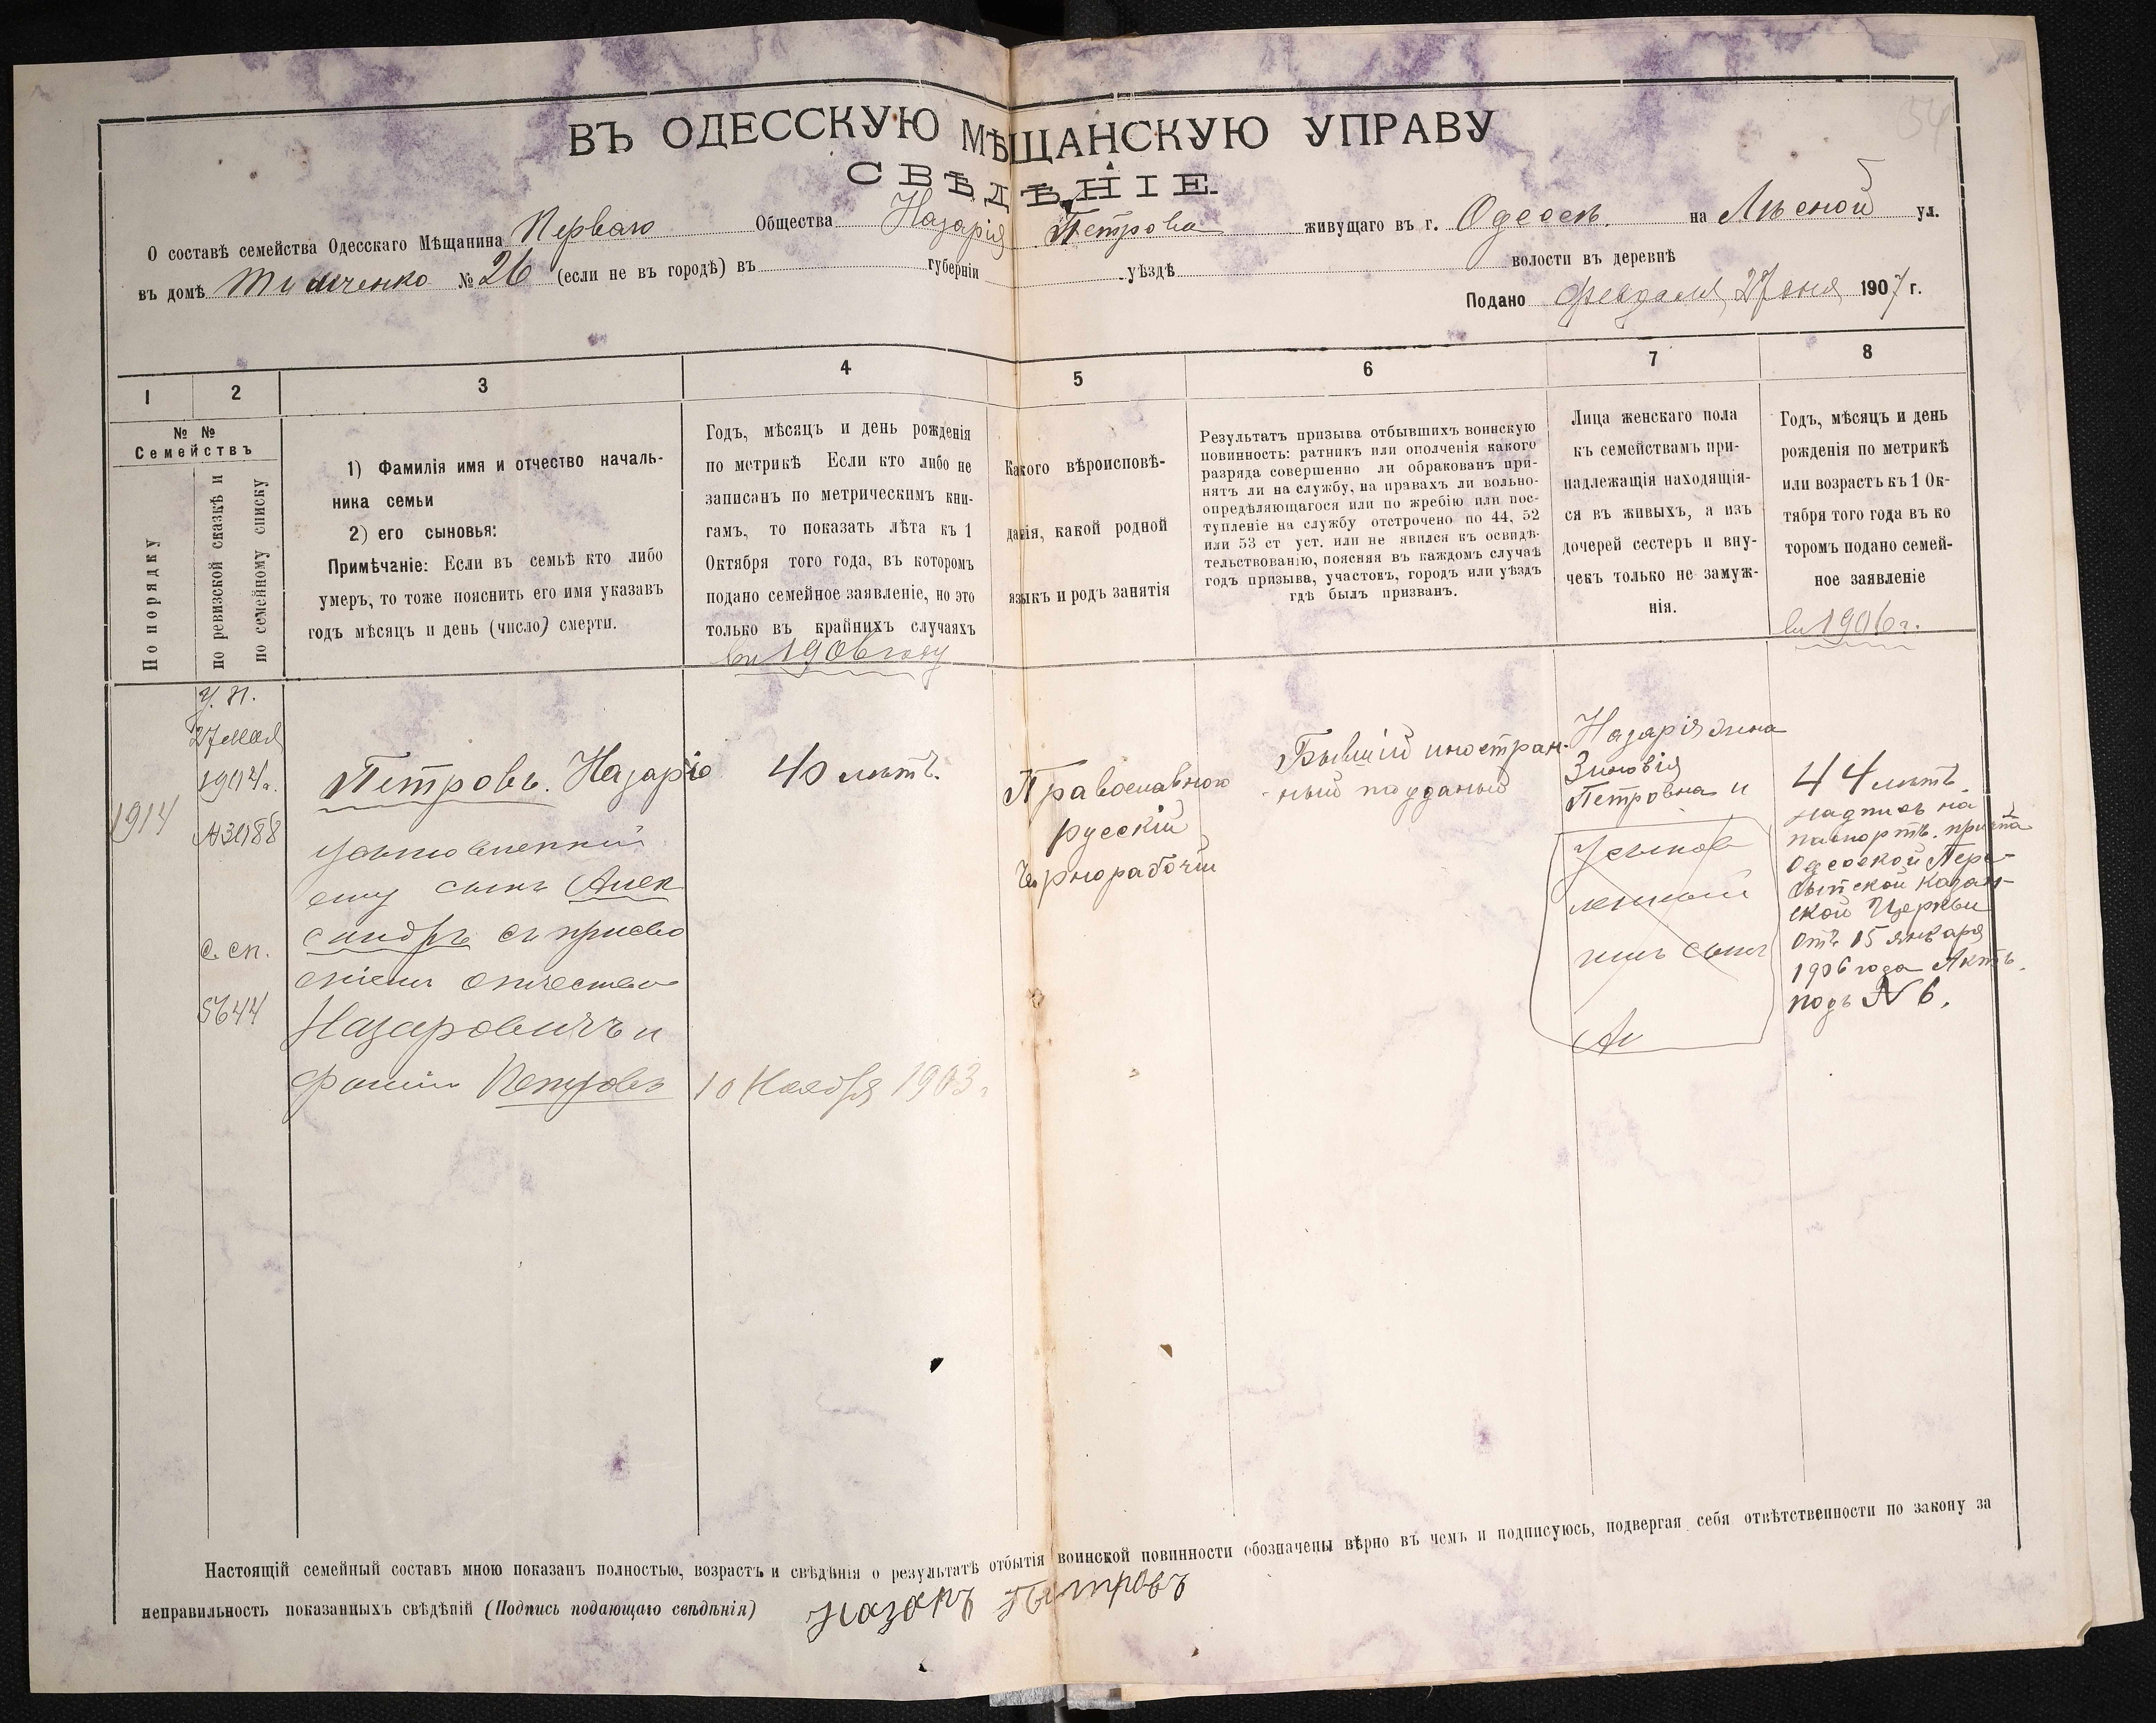 54
ВЪ ОДЕССКУЮ МѢЩАНСКУЮ УПРАВУ
СВѢДѢНІЕ.
О составѣ семейства Одесскаго Мѣщанина Перваго Общества Назарія Петрова живущаго въ г. Одессѣ. на Лѣсной ул.
въ домѣ Тимченко № 26 (если не въ городѣ) въ губерніи уѣздѣ волости въ деревнѣ
Подано Февраля 27 дня 1907 г.
1 2 3 4 5 6 7 8
№ №
Семействъ
По порядку
по ревизской сказкѣ и
по семейному списку
1) Фамилія имя и отчество началь-
ника семьи
2) его сыновья:
Примѣчаніе: Если въ семьѣ кто либо
умеръ, то тоже пояснить его имя указавъ
годъ мѣсяцъ и день (число) смерти.
Годъ, мѣсяцъ и день рожденія
по метрикѣ Если кто либо не
записанъ по метрическимъ кни-
гамъ, то показать лѣта къ 1
Октября того года, въ которомъ
подано семейное заявленіе, но это
только въ крайнихъ случаяхъ
въ 1906 году
Какого вѣроисповѣ-
данія, какой родной
языкъ и родъ занятія
Результатъ призыва отбывшихъ воинскую
повинность: ратникъ или ополченія какого
разряда совершенно ли обракованъ при-
нятъ ли на службу, на правахъ ли вольно-
опредѣляющагося или по жребію или пос-
тупленіе на службу отстрочено по 44, 52
или 53 ст уст. или не явился къ освидѣ-
тельствованію, поясняя въ каждомъ случаѣ
годъ призыва, участокъ, городъ или уѣздъ
гдѣ былъ призванъ.
Лица женскаго пола
къ семействамъ при-
надлежащія находящія-
ся въ живыхъ, а изъ
дочерей сестеръ и вну-
чекъ только не замуж-
нія.
Годъ, мѣсяцъ и день
рожденія по метрикѣ
или возрастъ къ 1 Ок-
тября того года въ ко
торомъ подано семей-
ное заявленіе
въ 1906 г.
1914
27 мая
1904 г.
с. сп.
5644
Петровъ. Назарій
усыновленный
ему сынъ Алек
сандръ съ присво
еніемъ отчества
Назаровичъ и
фамиліи Петровъ
40 лѣтъ.
10 Ноября 1903 г
Православного
русскій
Чернорабочій
Бывшій иностран-
ный подданый
Назарія жена
Зиновія
Петровна и
Усынов
ленный
ими сынъ
Ал
44 лѣтъ.
надпись на
паспортѣ. причта
Одесской Пере-
сыпской Казан-
ской Церкви
отъ 15 января
1906 года Актъ.
подъ N 6.
Настоящій семейный составъ мною показанъ полностью, возрастъ и свѣдѣнія о результатѣ отбытія воинской повинности обозначены вѣрно въ чемъ и подписуюсь, подвергая себя отвѣтственности по закону за
неправильность показанныхъ свѣдѣній (Подпись подающаго свѣдѣнія) Назаръ Петровъ